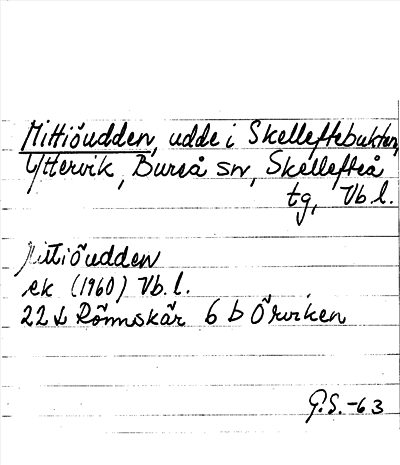 Mittiöudden, udde i Skelleftebukten,
Yttervik, Bureå sn, Skellefteå
tg, Vb.l.
Mittiöudden
ek (1960) Vb.l.
22 L Rönnskär 6 b Örviken
G.S.-63